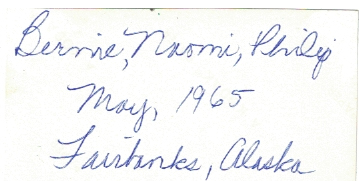 Bernie, Naomi, Philip
May, 1965
Fairbanks, Alaska